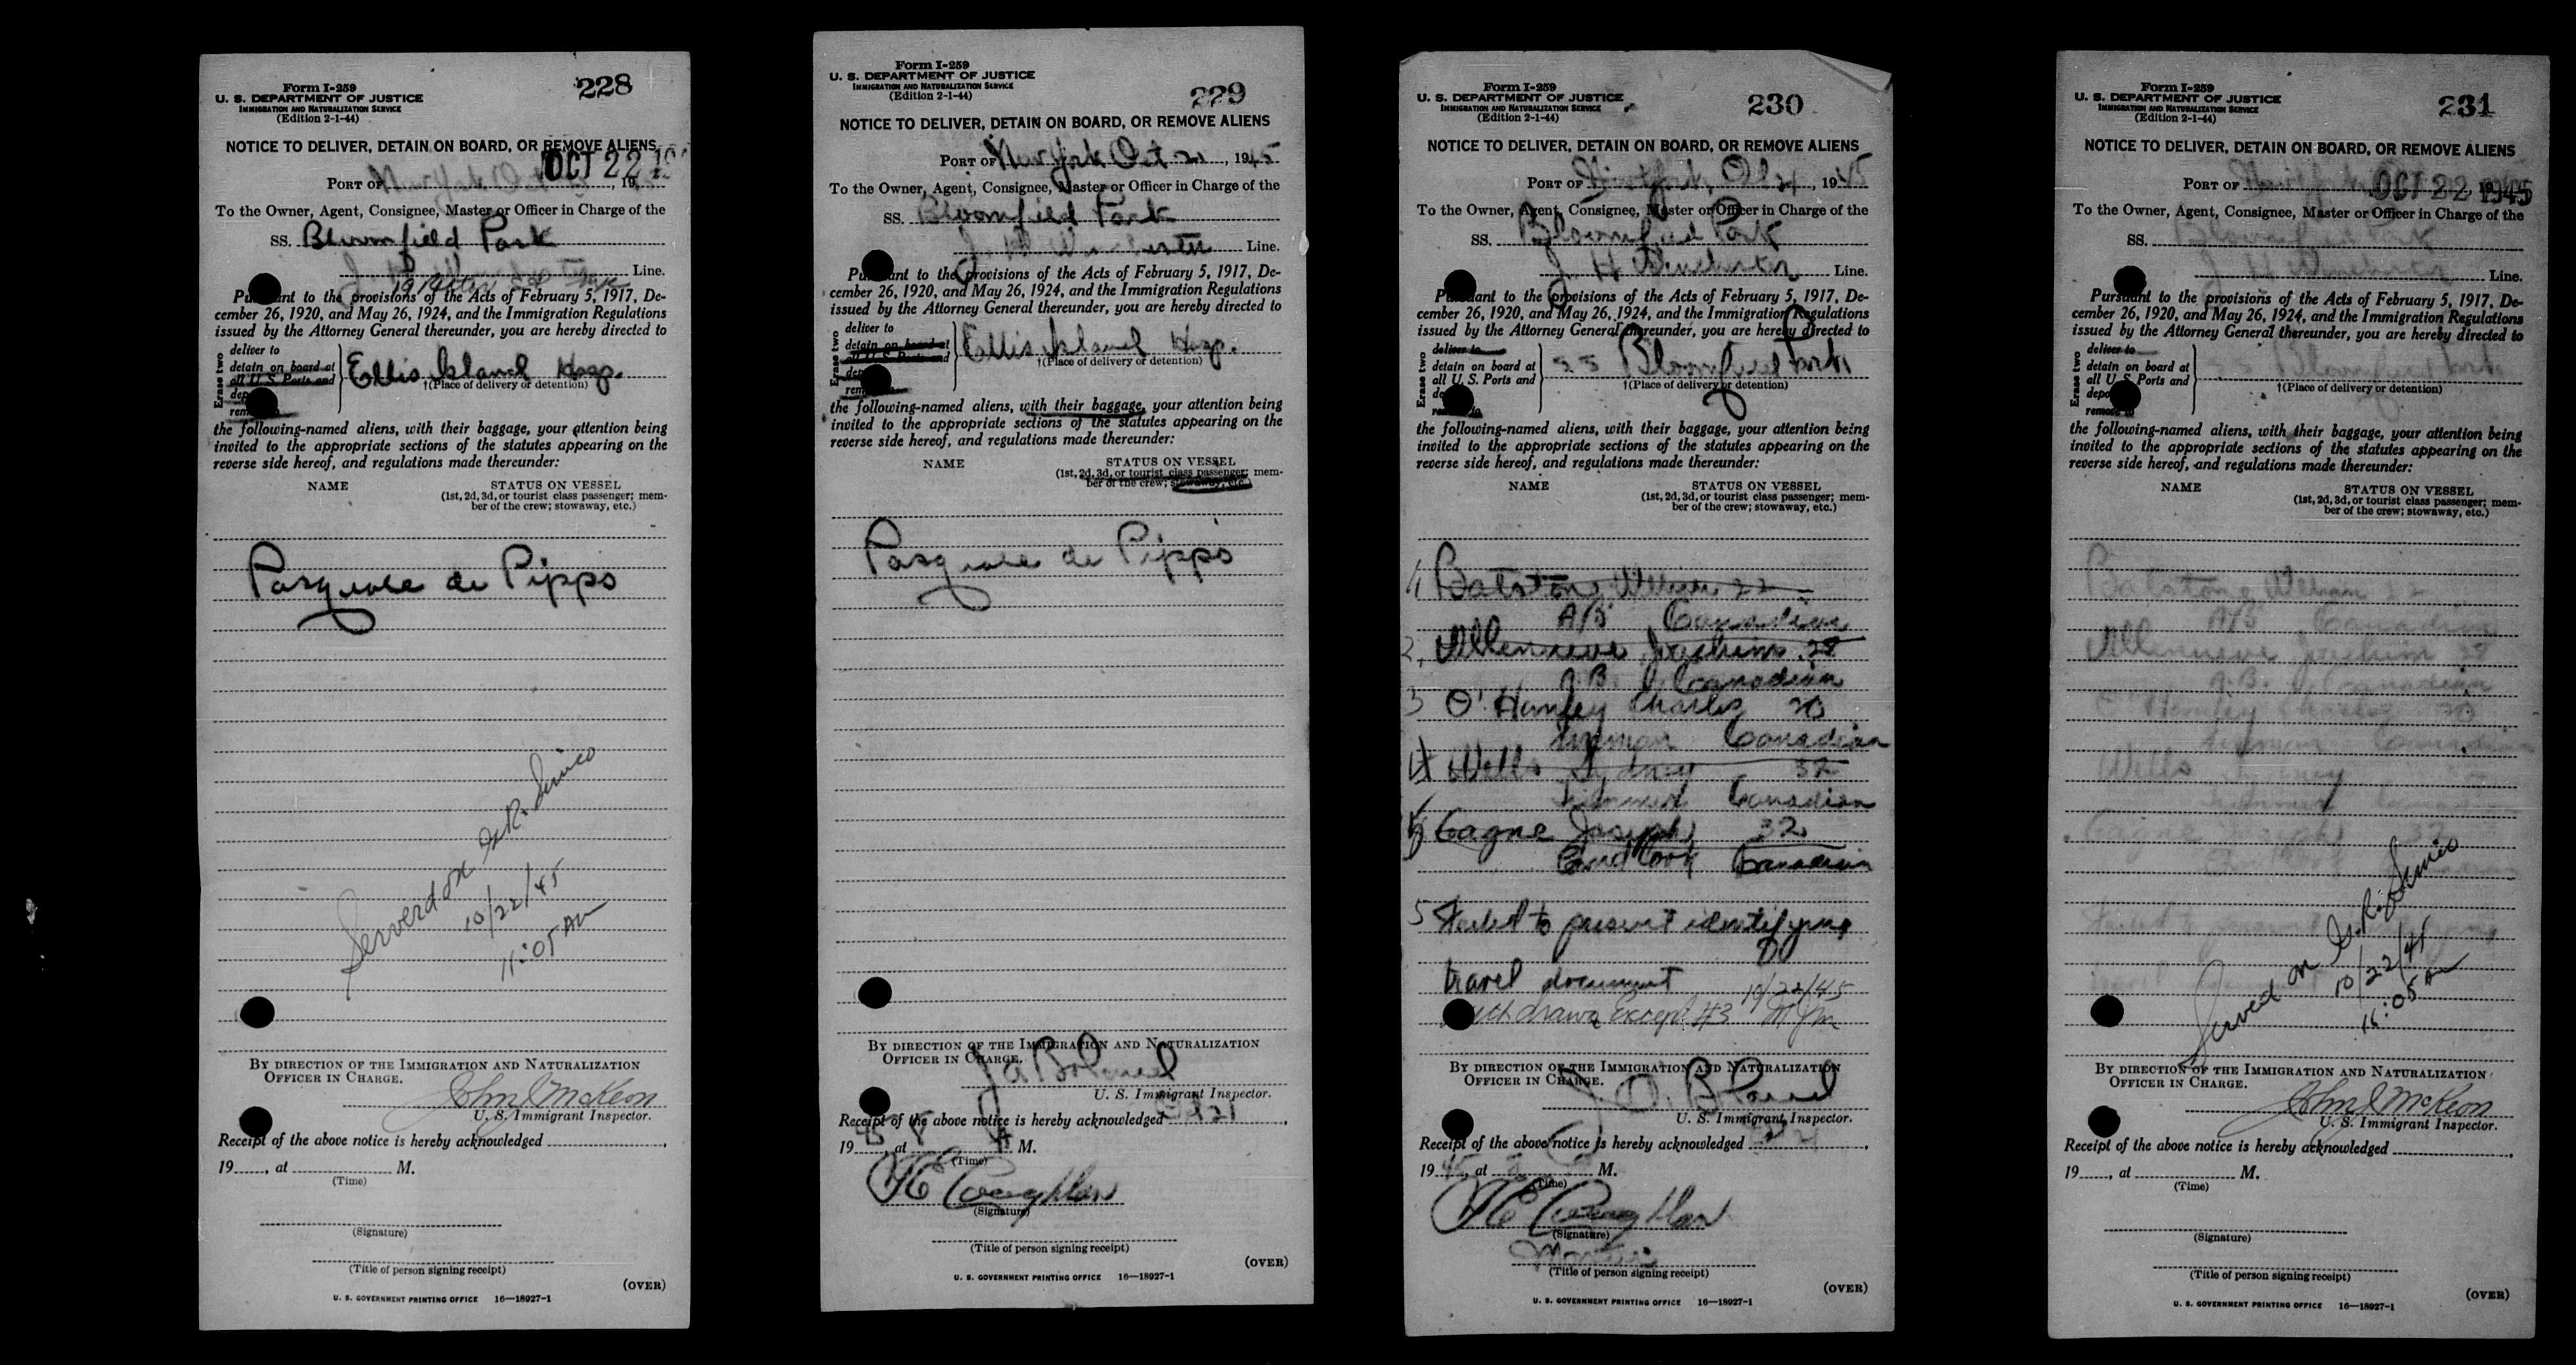 Form I-259
U. S. DEPARTMENT OF JUSTICE
IMMIGRATION AND NATURALIZATION SERVICE
(Edition 2-1-44)
228
NOTICE TO DELIVER, DETAIN ON BOARD, OR REMOVE ALIENS
OCT 22 19
PORT OF New York, 19
To the Owner, Agent, Consignee, Master or Officer in Charge of the
SS. Bloomfield Park
Line.
Pursuant to the provisions of the Acts of February 5, 1917, De-
cember 26, 1920, and May 26, 1924, and the Immigration Regulations
issued by the Attorney General thereunder, you are hereby directed to
Erase two
deliver to
detain on board at
all U. S. Ports and
Ellis Island Hosp.
†(Place of delivery or detention)
the following-named aliens, with their baggage, your attention being
invited to the appropriate sections of the statutes appearing on the
reverse side hereof, and regulations made thereunder:
NAME STATUS ON VESSEL
(1st, 2d, 3d, or tourist class passenger; mem-
ber of the crew; stowaway, etc.)
Pasquale de Pippo
Served on
10/22/45
11:05 AM
BY DIRECTION OF THE IMMIGRATION AND NATURALIZATION
OFFICER IN CHARGE.
John J McKeon
U. S. Immigrant Inspector.
Receipt of the above notice is hereby acknowledged
19, at M.
(Time)
(Signature)
(Title of person signing receipt)
(OVER)
U. S. GOVERNMENT PRINTING OFFICE 16—18927-1
Form I-259
U. S. DEPARTMENT OF JUSTICE
IMMIGRATION AND NATURALIZATION SERVICE
(Edition 2-1-44)
229
NOTICE TO DELIVER, DETAIN ON BOARD, OR REMOVE ALIENS
PORT OF New York Oct 21, 1945
To the Owner, Agent, Consignee, Master or Officer in Charge of the
SS. Bloomfield Park
J. H. Winchester Line.
Pursuant to the provisions of the Acts of February 5, 1917, De-
cember 26, 1920, and May 26, 1924, and the Immigration Regulations
issued by the Attorney General thereunder, you are hereby directed to
Erase two
deliver to
detain on board at
all U. S. Ports and
Ellis Island Hosp.
†(Place of delivery or detention)
the following-named aliens, with their baggage, your attention being
invited to the appropriate sections of the statutes appearing on the
reverse side hereof, and regulations made thereunder:
NAME STATUS ON VESSEL
(1st, 2d, 3d, or tourist class passenger; mem-
ber of the crew; stowaway, etc.)
Pasquale de Pippo
BY DIRECTION OF THE IMMIGRATION AND NATURALIZATION
OFFICER IN CHARGE.
U. S. Immigrant Inspector.
Receipt of the above notice is hereby acknowledged
1945, at M.
(Time)
Coughlan
(Signature)
(Title of person signing receipt)
(OVER)
U. S. GOVERNMENT PRINTING OFFICE 16—18927-1
Form I-259
U. S. DEPARTMENT OF JUSTICE
IMMIGRATION AND NATURALIZATION SERVICE
(Edition 2-1-44)
230
NOTICE TO DELIVER, DETAIN ON BOARD, OR REMOVE ALIENS
PORT OF, 1945
To the Owner, Agent, Consignee, Master or Officer in Charge of the
SS. Bloomfield Park
J H Winchester Line.
Pursuant to the provisions of the Acts of February 5, 1917, De-
cember 26, 1920, and May 26, 1924, and the Immigration Regulations
issued by the Attorney General thereunder, you are hereby directed to
Erase two
deliver to
detain on board at
all U. S. Ports and
SS Bloomfield Park
†(Place of delivery or detention)
the following-named aliens, with their baggage, your attention being
invited to the appropriate sections of the statutes appearing on the
reverse side hereof, and regulations made thereunder:
NAME STATUS ON VESSEL
(1st, 2d, 3d, or tourist class passenger; mem-
ber of the crew; stowaway, etc.)
1 Batstone William 22
A/B Canadian
2, Villeneuve Joachim 28
Canadian
3 O'Hanley Charles 20
Canadian
4 Wells Sydney 32
Canadian
5 Gagne Joseph 32
2nd Cook Canadian
5 Failed to present identifying
travel document
10/22/45
Withdrawn except #3
BY DIRECTION OF THE IMMIGRATION AND NATURALIZATION
OFFICER IN CHARGE.
U. S. Immigrant Inspector.
Receipt of the above notice is hereby acknowledged
1945, at M.
(Time)
Coughlan
(Signature)
Master
(Title of person signing receipt)
(OVER)
U. S. GOVERNMENT PRINTING OFFICE 16—18927-1
Form I-259
U. S. DEPARTMENT OF JUSTICE
IMMIGRATION AND NATURALIZATION SERVICE
(Edition 2-1-44)
231
NOTICE TO DELIVER, DETAIN ON BOARD, OR REMOVE ALIENS
PORT OF OCT 22 1945
To the Owner, Agent, Consignee, Master or Officer in Charge of the
SS. Bloomfield Park
J H Winchester Line.
Pursuant to the provisions of the Acts of February 5, 1917, De-
cember 26, 1920, and May 26, 1924, and the Immigration Regulations
issued by the Attorney General thereunder, you are hereby directed to
Erase two
deliver to
detain on board at
all U. S. Ports and
Bloomfield Park
†(Place of delivery or detention)
the following-named aliens, with their baggage, your attention being
invited to the appropriate sections of the statutes appearing on the
reverse side hereof, and regulations made thereunder:
NAME STATUS ON VESSEL
(1st, 2d, 3d, or tourist class passenger; mem-
ber of the crew; stowaway, etc.)
Batstone William 22
A/B Canadian
Villeneuve Joachim 28
Canadian
Wells Sydney
Served on
10/22/45
11:05 AM
BY DIRECTION OF THE IMMIGRATION AND NATURALIZATION
OFFICER IN CHARGE.
John J McKeon
U. S. Immigrant Inspector.
Receipt of the above notice is hereby acknowledged
19, at M.
(Time)
(Signature)
(Title of person signing receipt)
(OVER)
U. S. GOVERNMENT PRINTING OFFICE 16—18927-1